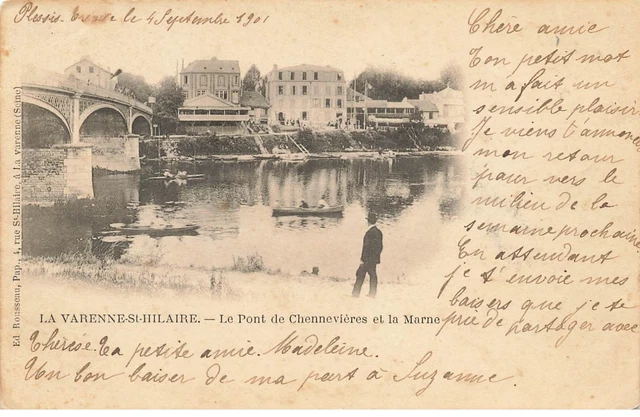 Plessis Trevise le 4 Septembre 1901
Chère amie
Ton petit mot
m'a fait un
sensible plaisir
Je viens t'annoncer
mon retour
pour vers le
milieu de la
semaine prochaine
En attendant
je t'envoie mes
baisers que je te
prie de partager avec
Thérèse. Ta petite amie. Madeleine.
Un bon baiser de ma part à Suzanne.
LA VARENNE-St-HILAIRE. — Le Pont de Chennevières et la Marne
Ed. Rousseau, Pap., 4, rue St-Hilaire, à La Varenne (Seine)